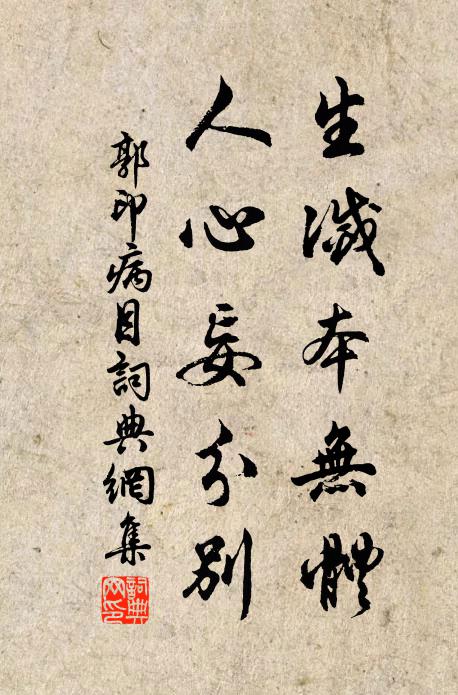 生滅本無體
人心妄分別
郭印病目詞典網集